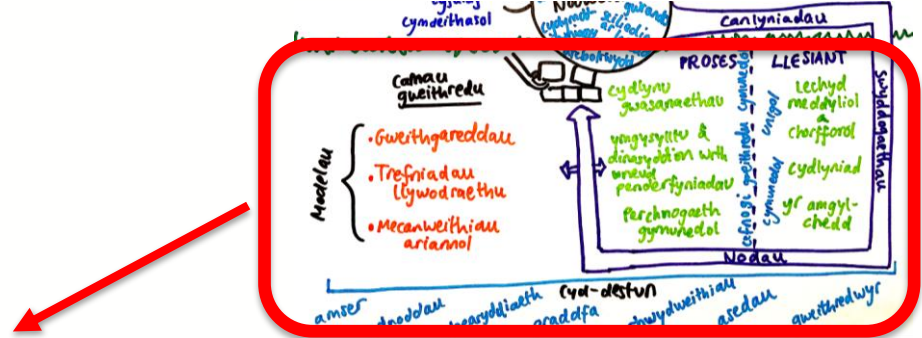 cymdeithasol
Canlyniadau
PROSES
LLESIANT
Camau
gweithredu
Modelau
•Gweithgareddau
•Trefniadau
llywodraethu
•Mecanweithiau
ariannol
cydlynu
gwasanaethau
ymgysylltu &
dinasyddion wrth
wneud
penderfyniadau
Perchnogaeth
gymunedol
cefnogi gweithredu cymunedol
unigol
cymunedol
Iechyd
meddyliol
a
chorfforol
cydlyniad
yr amgyl-
chedd
Swyddogaethau
Nodau
Cyd-destun
amser
graddfa
asedau
gweithredwyr